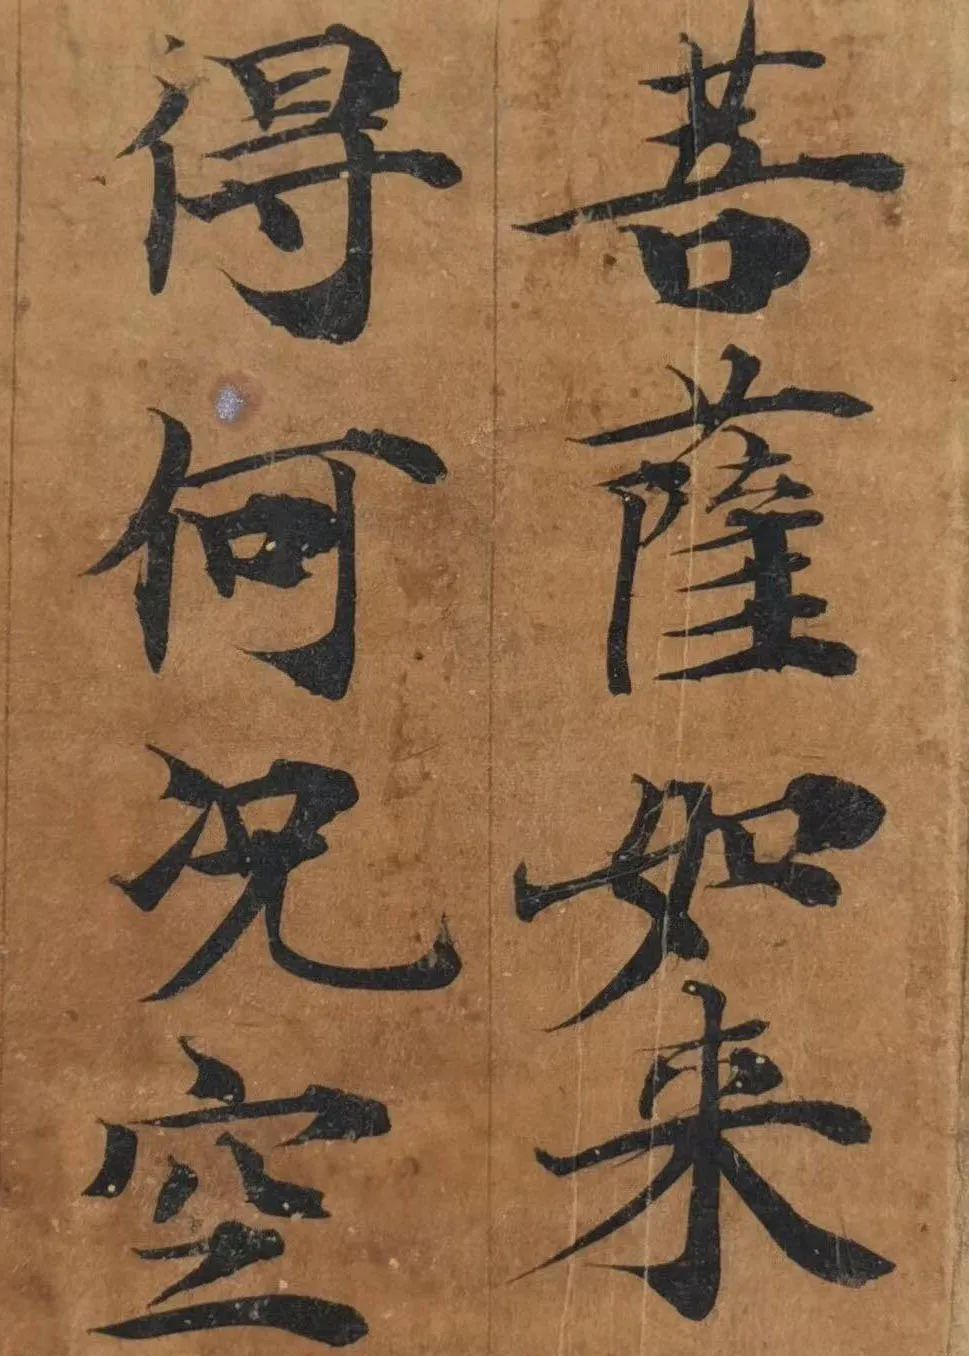 菩薩如来
得何況空